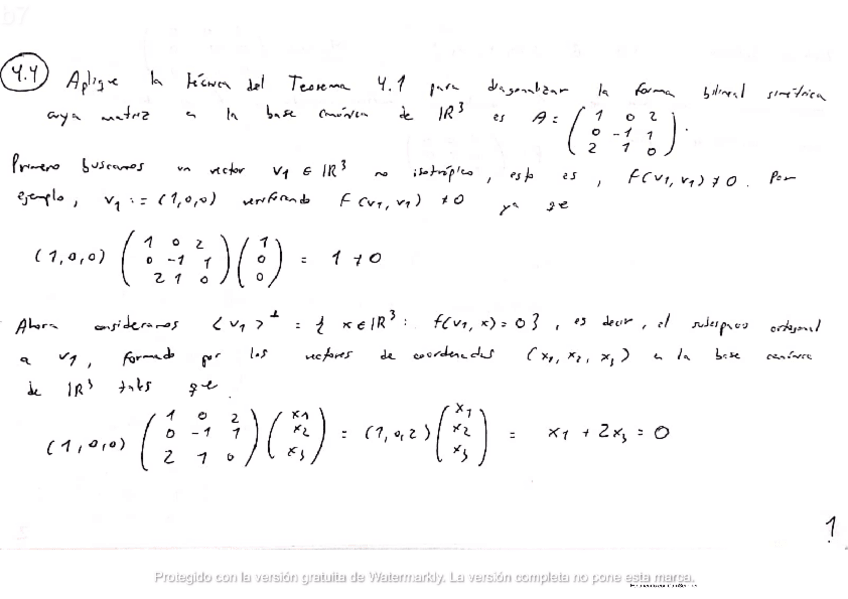 4.4 Aplique la técnica del Teorema 4.1 para diagonalizar la forma bilineal simétrica
cuya matriz en la base canónica de IR³ es A = ( 1 0 2
0 -1 1
2 1 0 ).
Primero buscamos un vector v1 ∈ IR³ no isotrópico, esto es, f(v1, v1) ≠ 0. Por
ejemplo, v1 := (1,0,0) verificando f(v1, v1) ≠ 0 ya que
(1,0,0) ( 1 0 2
0 -1 1
2 1 0 ) ( 1
0
0 ) = 1 ≠ 0
Ahora consideramos <v1>⊥ = { x ∈ IR³ : f(v1, x) = 0 }, es decir, el subespacio ortogonal
a v1, formado por los vectores de coordenadas (x1, x2, x3) en la base canónica
de IR³ tales que
(1,0,0) ( 1 0 2
0 -1 1
2 1 0 ) ( x1
x2
x3 ) = (1,0,2) ( x1
x2
x3 ) = x1 + 2x3 = 0
1
Protegido con la versión gratuita de Watermarkly. La versión completa no pone esta marca.